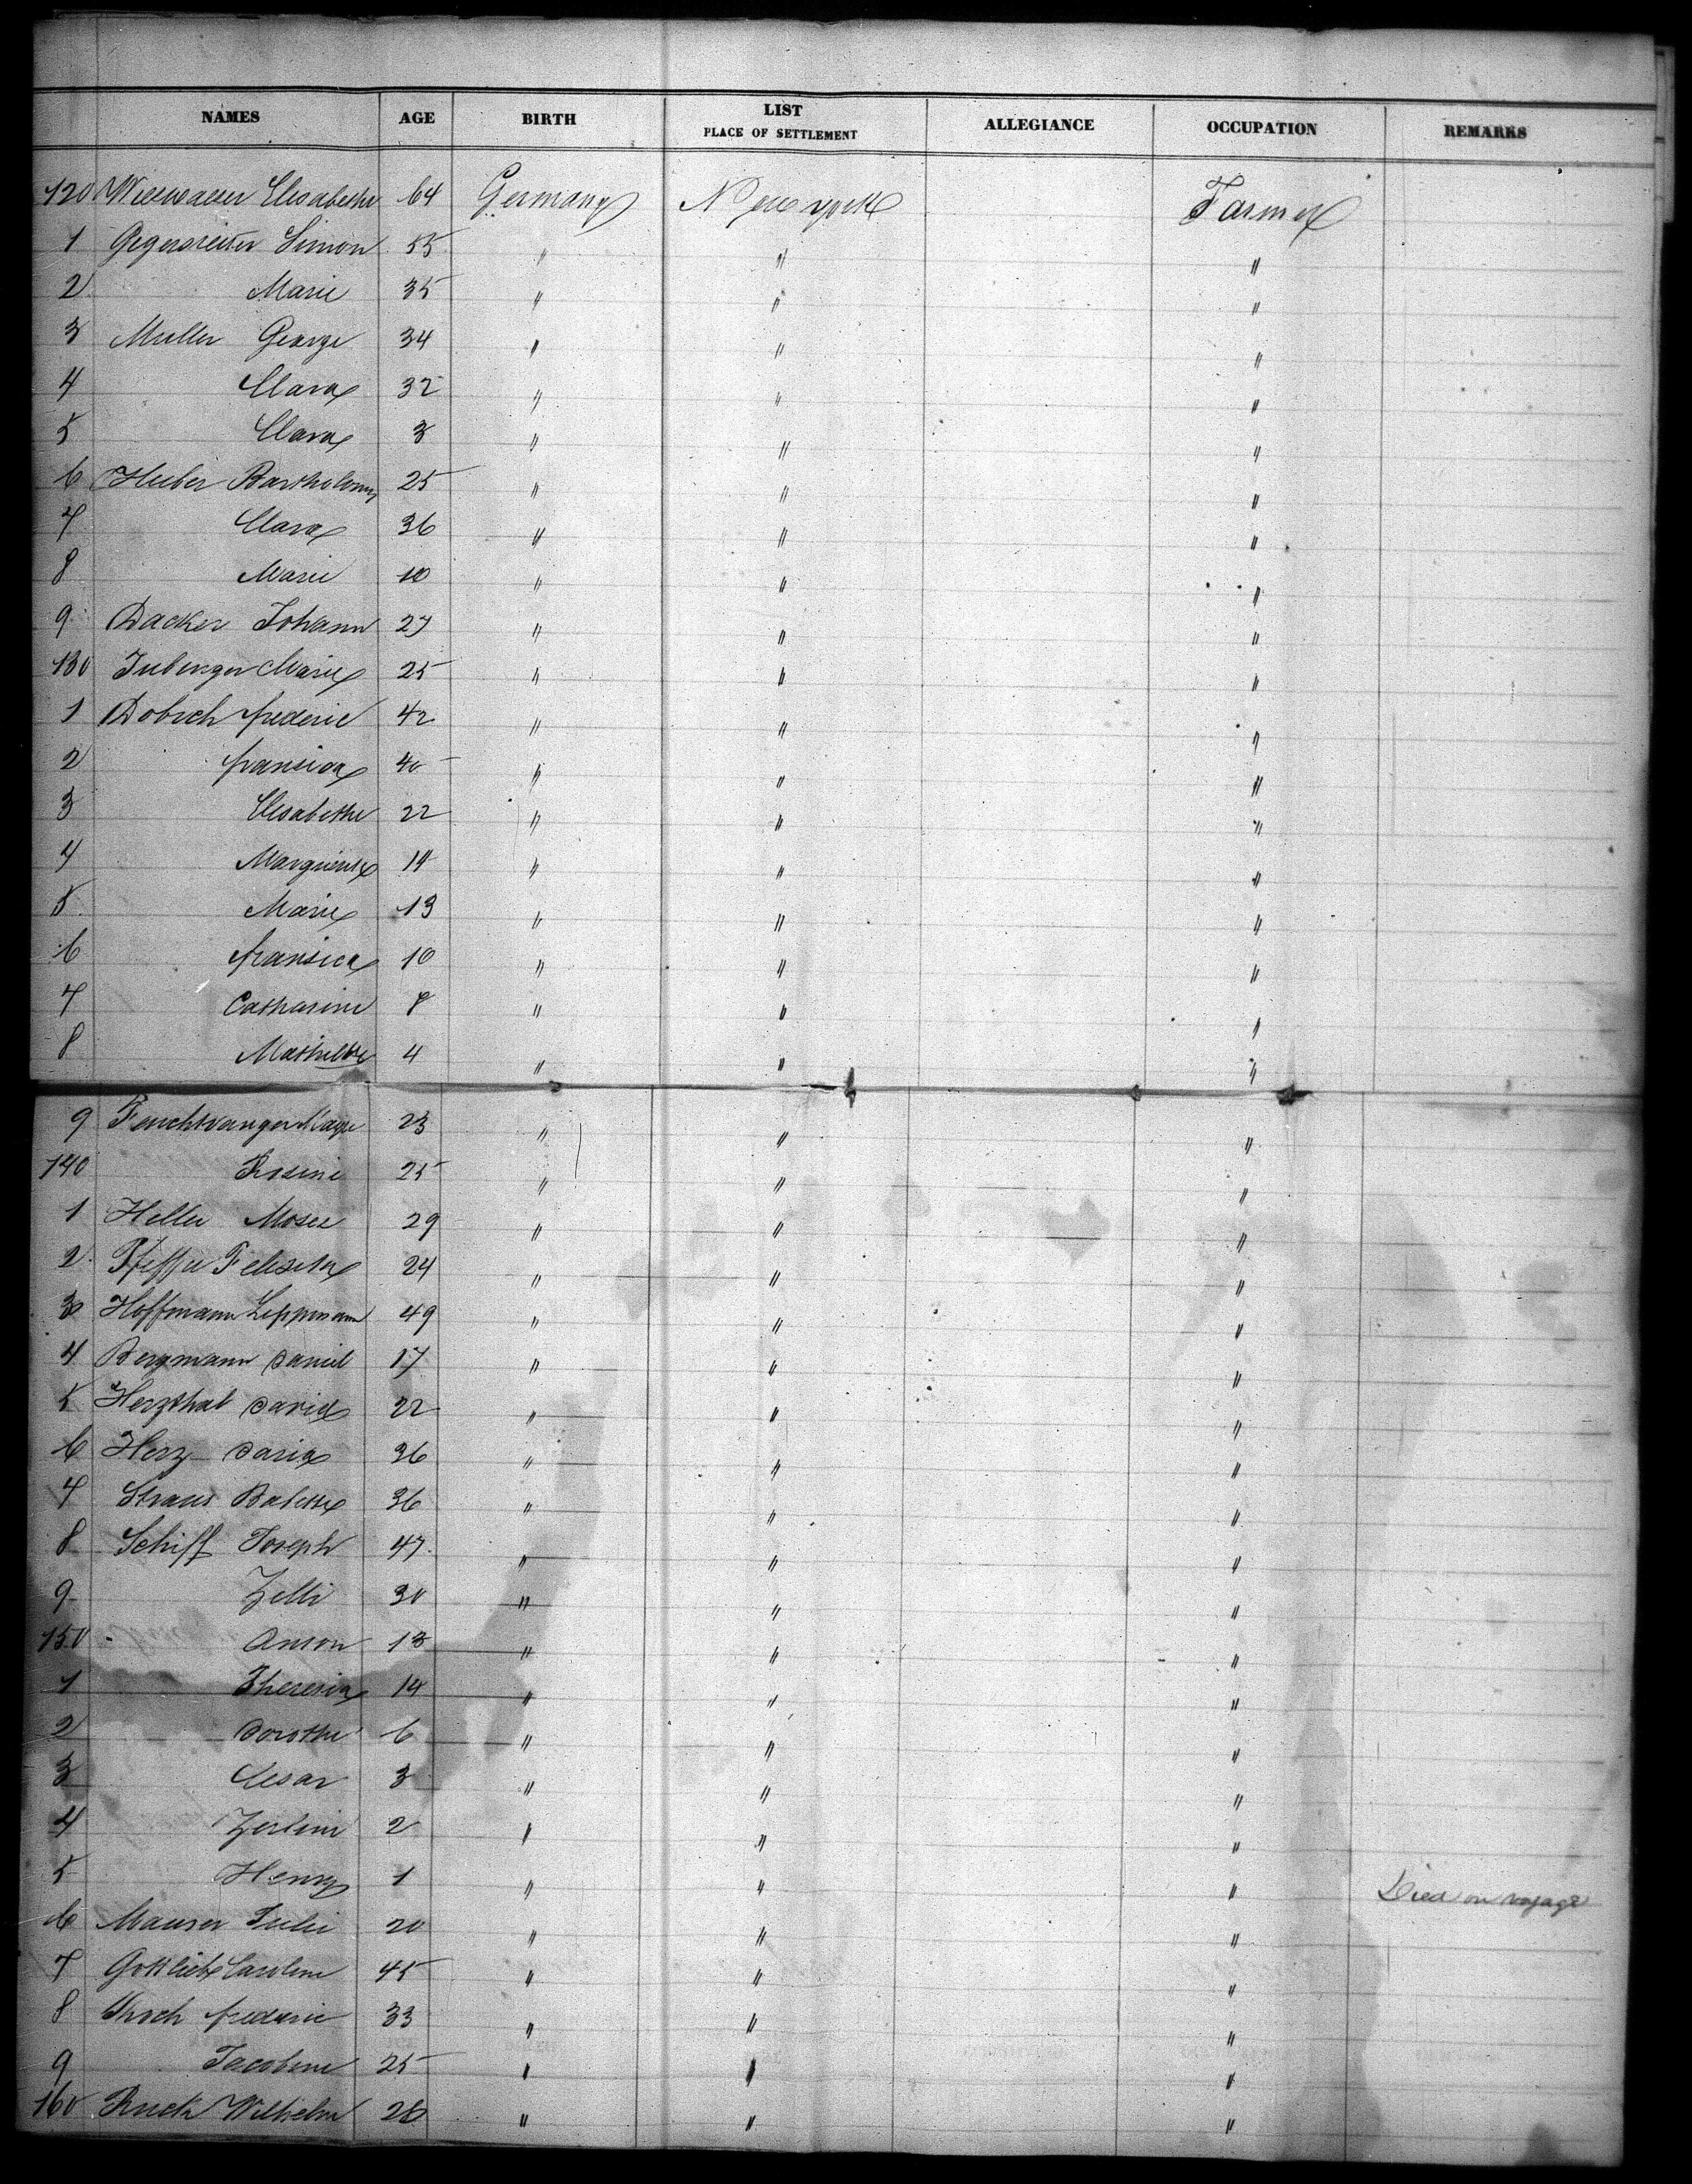 NAMES AGE BIRTH LIST PLACE OF SETTLEMENT ALLEGIANCE OCCUPATION REMARKS
120 Elisabethe 64 Germany New york Farmer
1 Simon 55 " " "
2 Marie 35 " " "
3 Muller George 34 " " "
4 Clara 32 " " "
5 Clara 3 " " "
6 Huber Bartholomy 25 " " "
7 Clara 36 " " "
8 Marie 10 " " "
9 Dacker Johann 27 " " "
130 Marie 25 " " "
1 Dobsch frederic 42 " " "
2 40 " " "
3 Elisabethe 22 " " "
4 14 " " "
5 Marie 13 " " "
6 fransica 10 " " "
7 Catharine 8 " " "
8 Mathilde 4 " " "
9 Feuchtwanger 23 " " "
140 Rosine 25 " " "
1 Heller Moses 29 " " "
2 24 " " "
3 Hoffmann Lippmann 49 " " "
4 Bergmann Daniel 17 " " "
5 Herzthal David 22 " " "
6 Herz 36 " " "
7 Straus Babette 36 " " "
8 Schiff Joseph 47 " " "
9 Zelli 30 " " "
150 Anton 13 " " "
1 Theresia 14 " " "
2 Dorothe 6 " " "
3 Cesar 3 " " "
4 Zerline 2 " " "
5 Henry 1 " " " Died on voyage
6 Mauser Julie 20 " " "
7 Gottlieb Caroline 45 " " "
8 frederic 33 " " "
9 Jacobine 25 " " "
160 Ruck Wilhelm 26 " " "